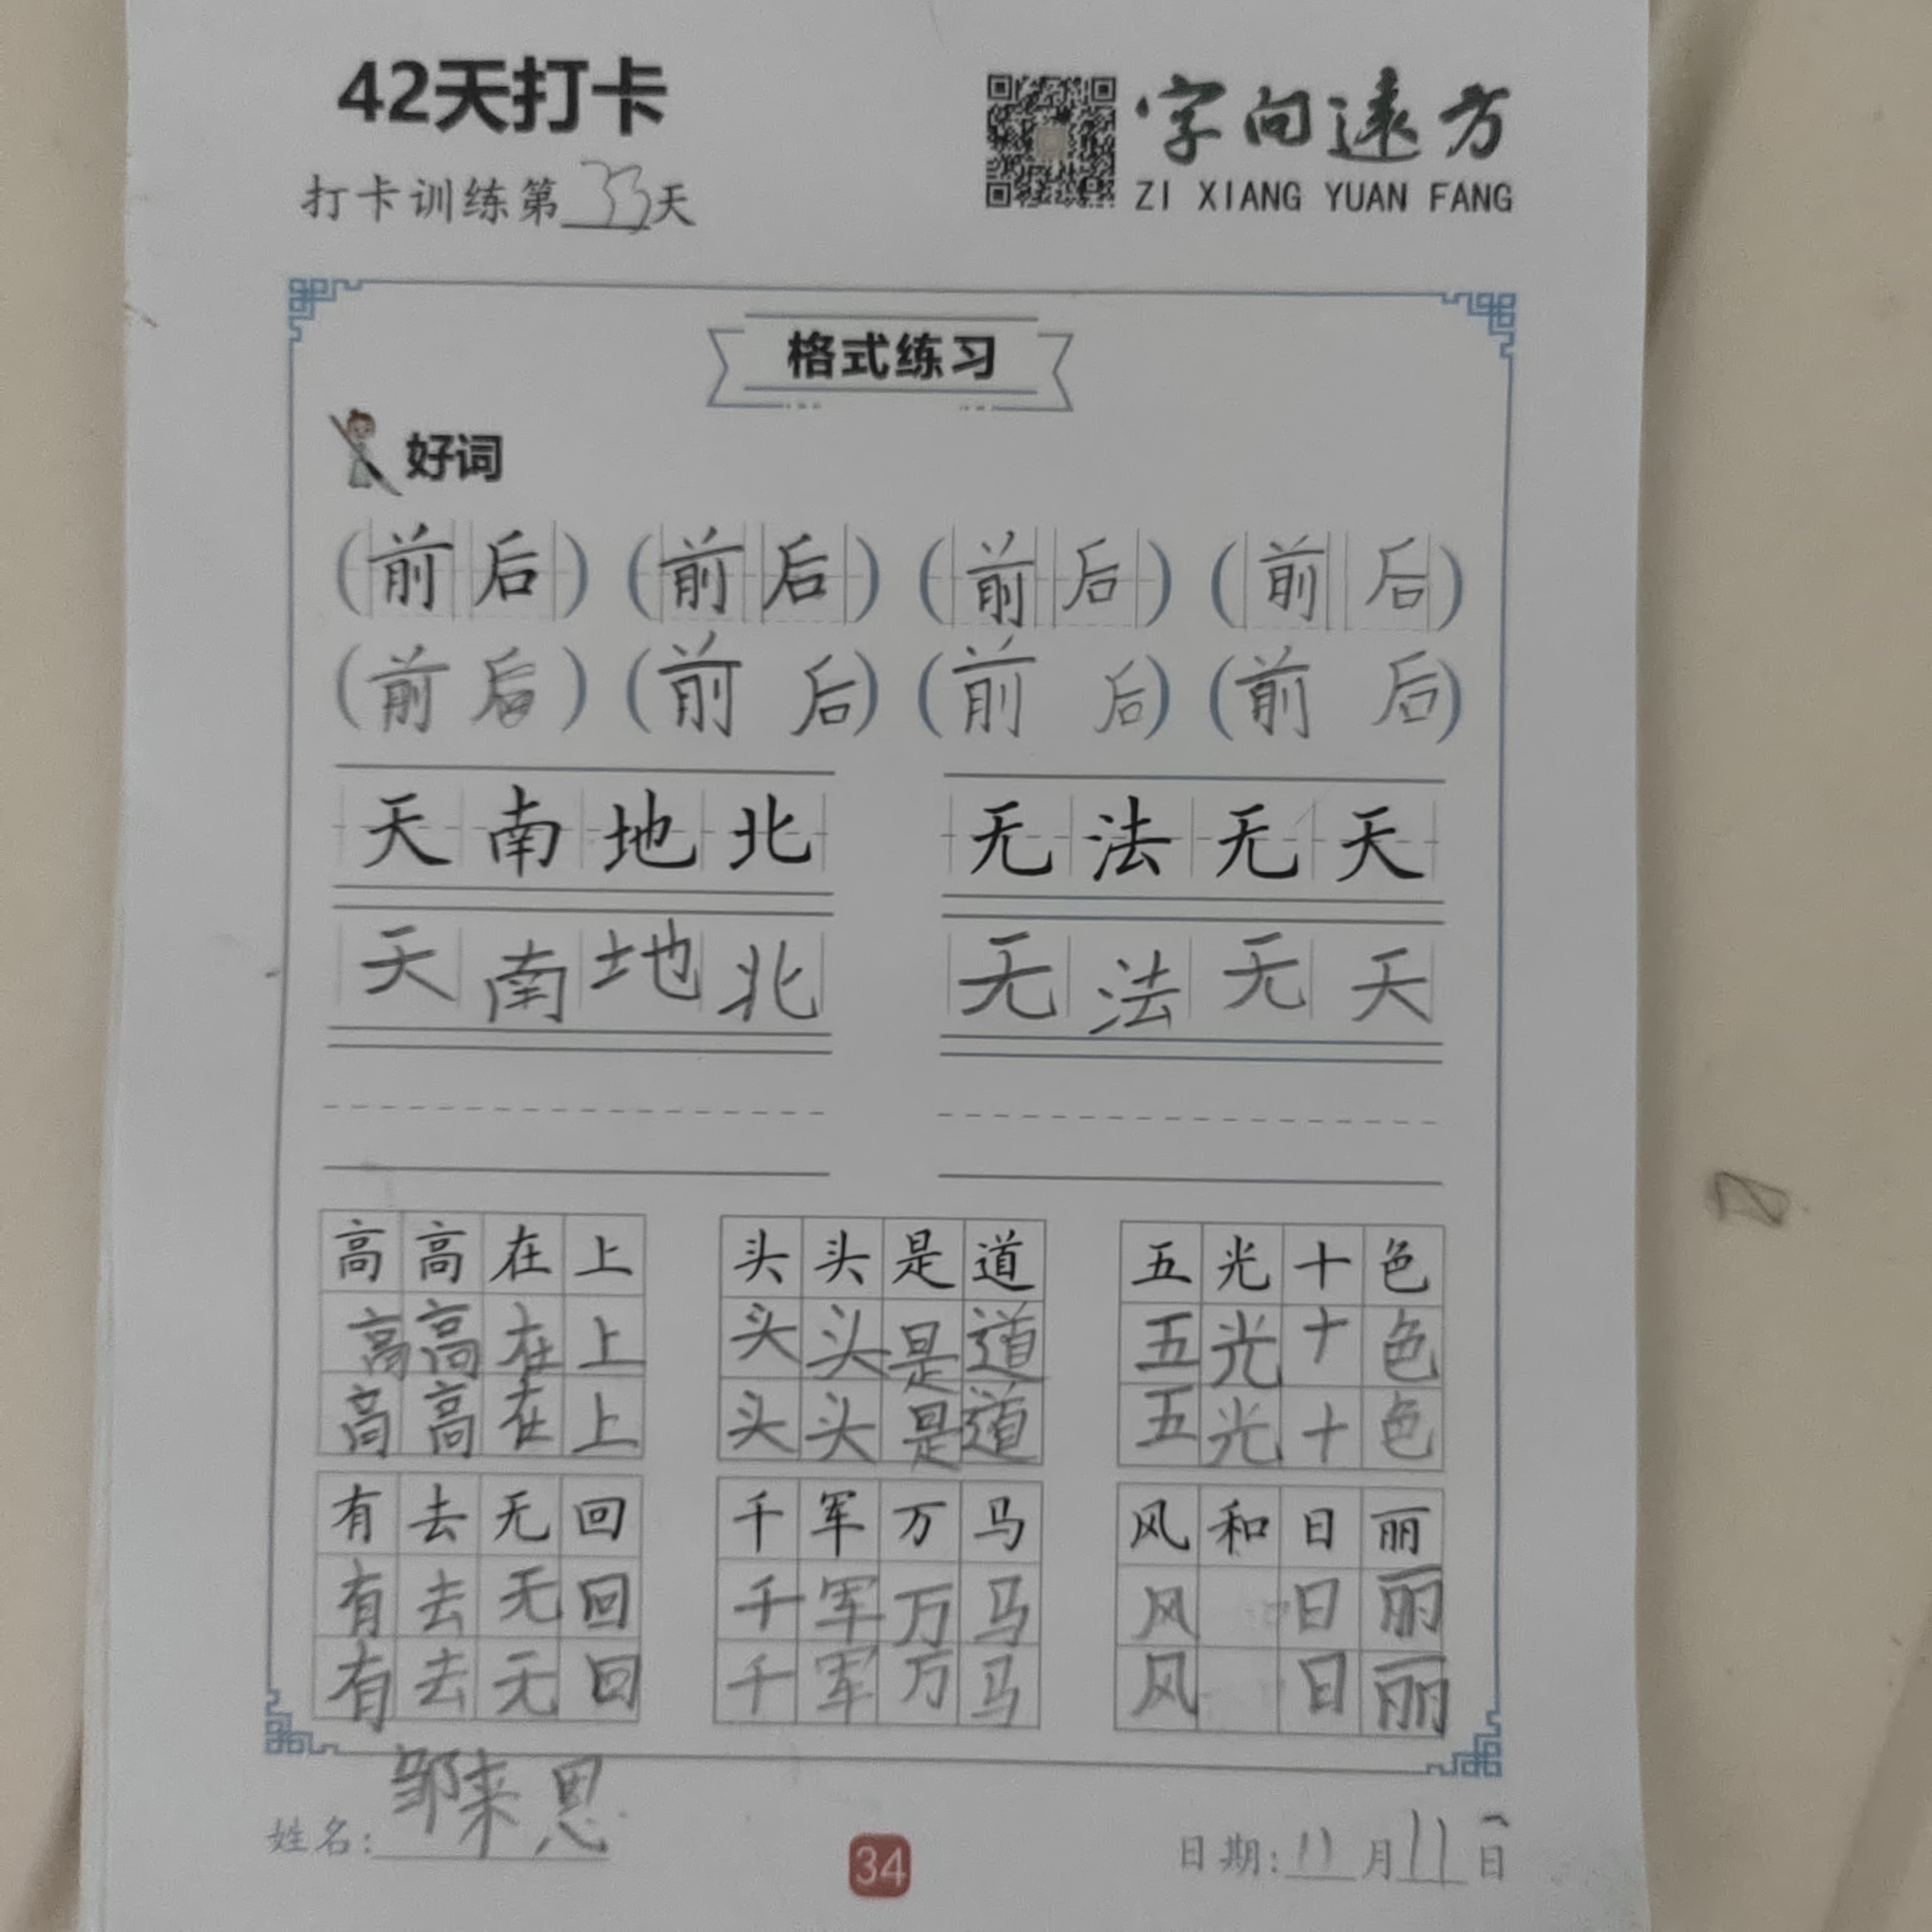 42天打卡
字向远方
打卡训练第33天
ZI XIANG YUAN FANG
格式练习
好词
(前后) (前后) (前后) (前后)
(前后) (前后) (前后) (前后)
天南地北 无法无天
天南地北 无法无天
高高在上 头头是道 五光十色
高高在上 头头是道 五光十色
高高在上 头头是道 五光十色
有去无回 千军万马 风和日丽
有去无回 千军万马 风 日丽
有去无回 千军万马 风 日丽
姓名:邹来思
34
日期:11月11日